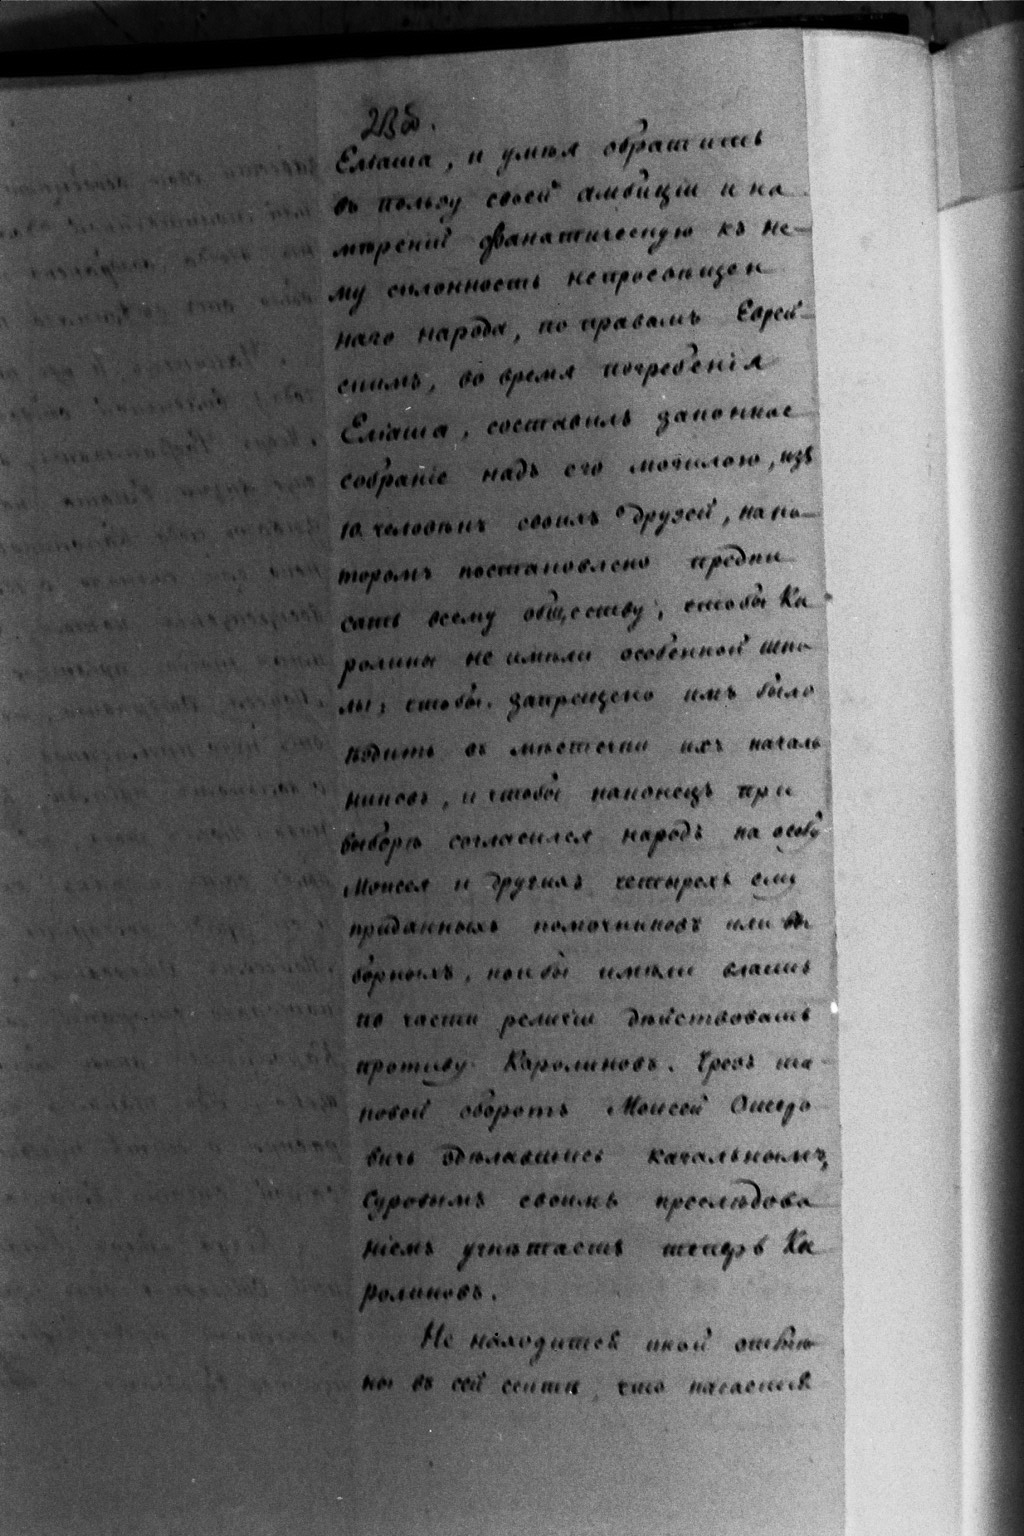 Еліаша, и умѣл обратить
въ пользу своей амбиціи и на
мѣреній фанатическую къ не-
му склонность непросвѣщен
наго народа, по правамъ Еврей-
скимъ, во время погребенія
Еліаша, составилъ законное
собраніе надъ его могилою, изъ
10 человѣкъ своихъ друзей, на ко-
торомъ постановлено предпи
сать всему обществу, чтобы Ка
ролины не имѣли особенной шко
лы, чтобы запрещено имъ было
ѣздить въ мѣстечки ихъ началь
никовъ, и чтобы наконецъ при
выборѣ согласился народъ на особу
Моисея и другихъ четырехъ ему
приданныхъ помочниковъ или вы
борныхъ, кои бы имѣли власть
по части религіи дѣйствовать
противу Каролиновъ. Чрезъ та-
ковой оборотъ Моисей Ошеро
вичь сдѣлавшись качальнымъ,
суровымъ своимъ преслѣдова
ніемъ угнѣтаетъ теперь Ка
ролиновъ.
Не находится иной отмѣ
ны въ сей сектѣ, что касается